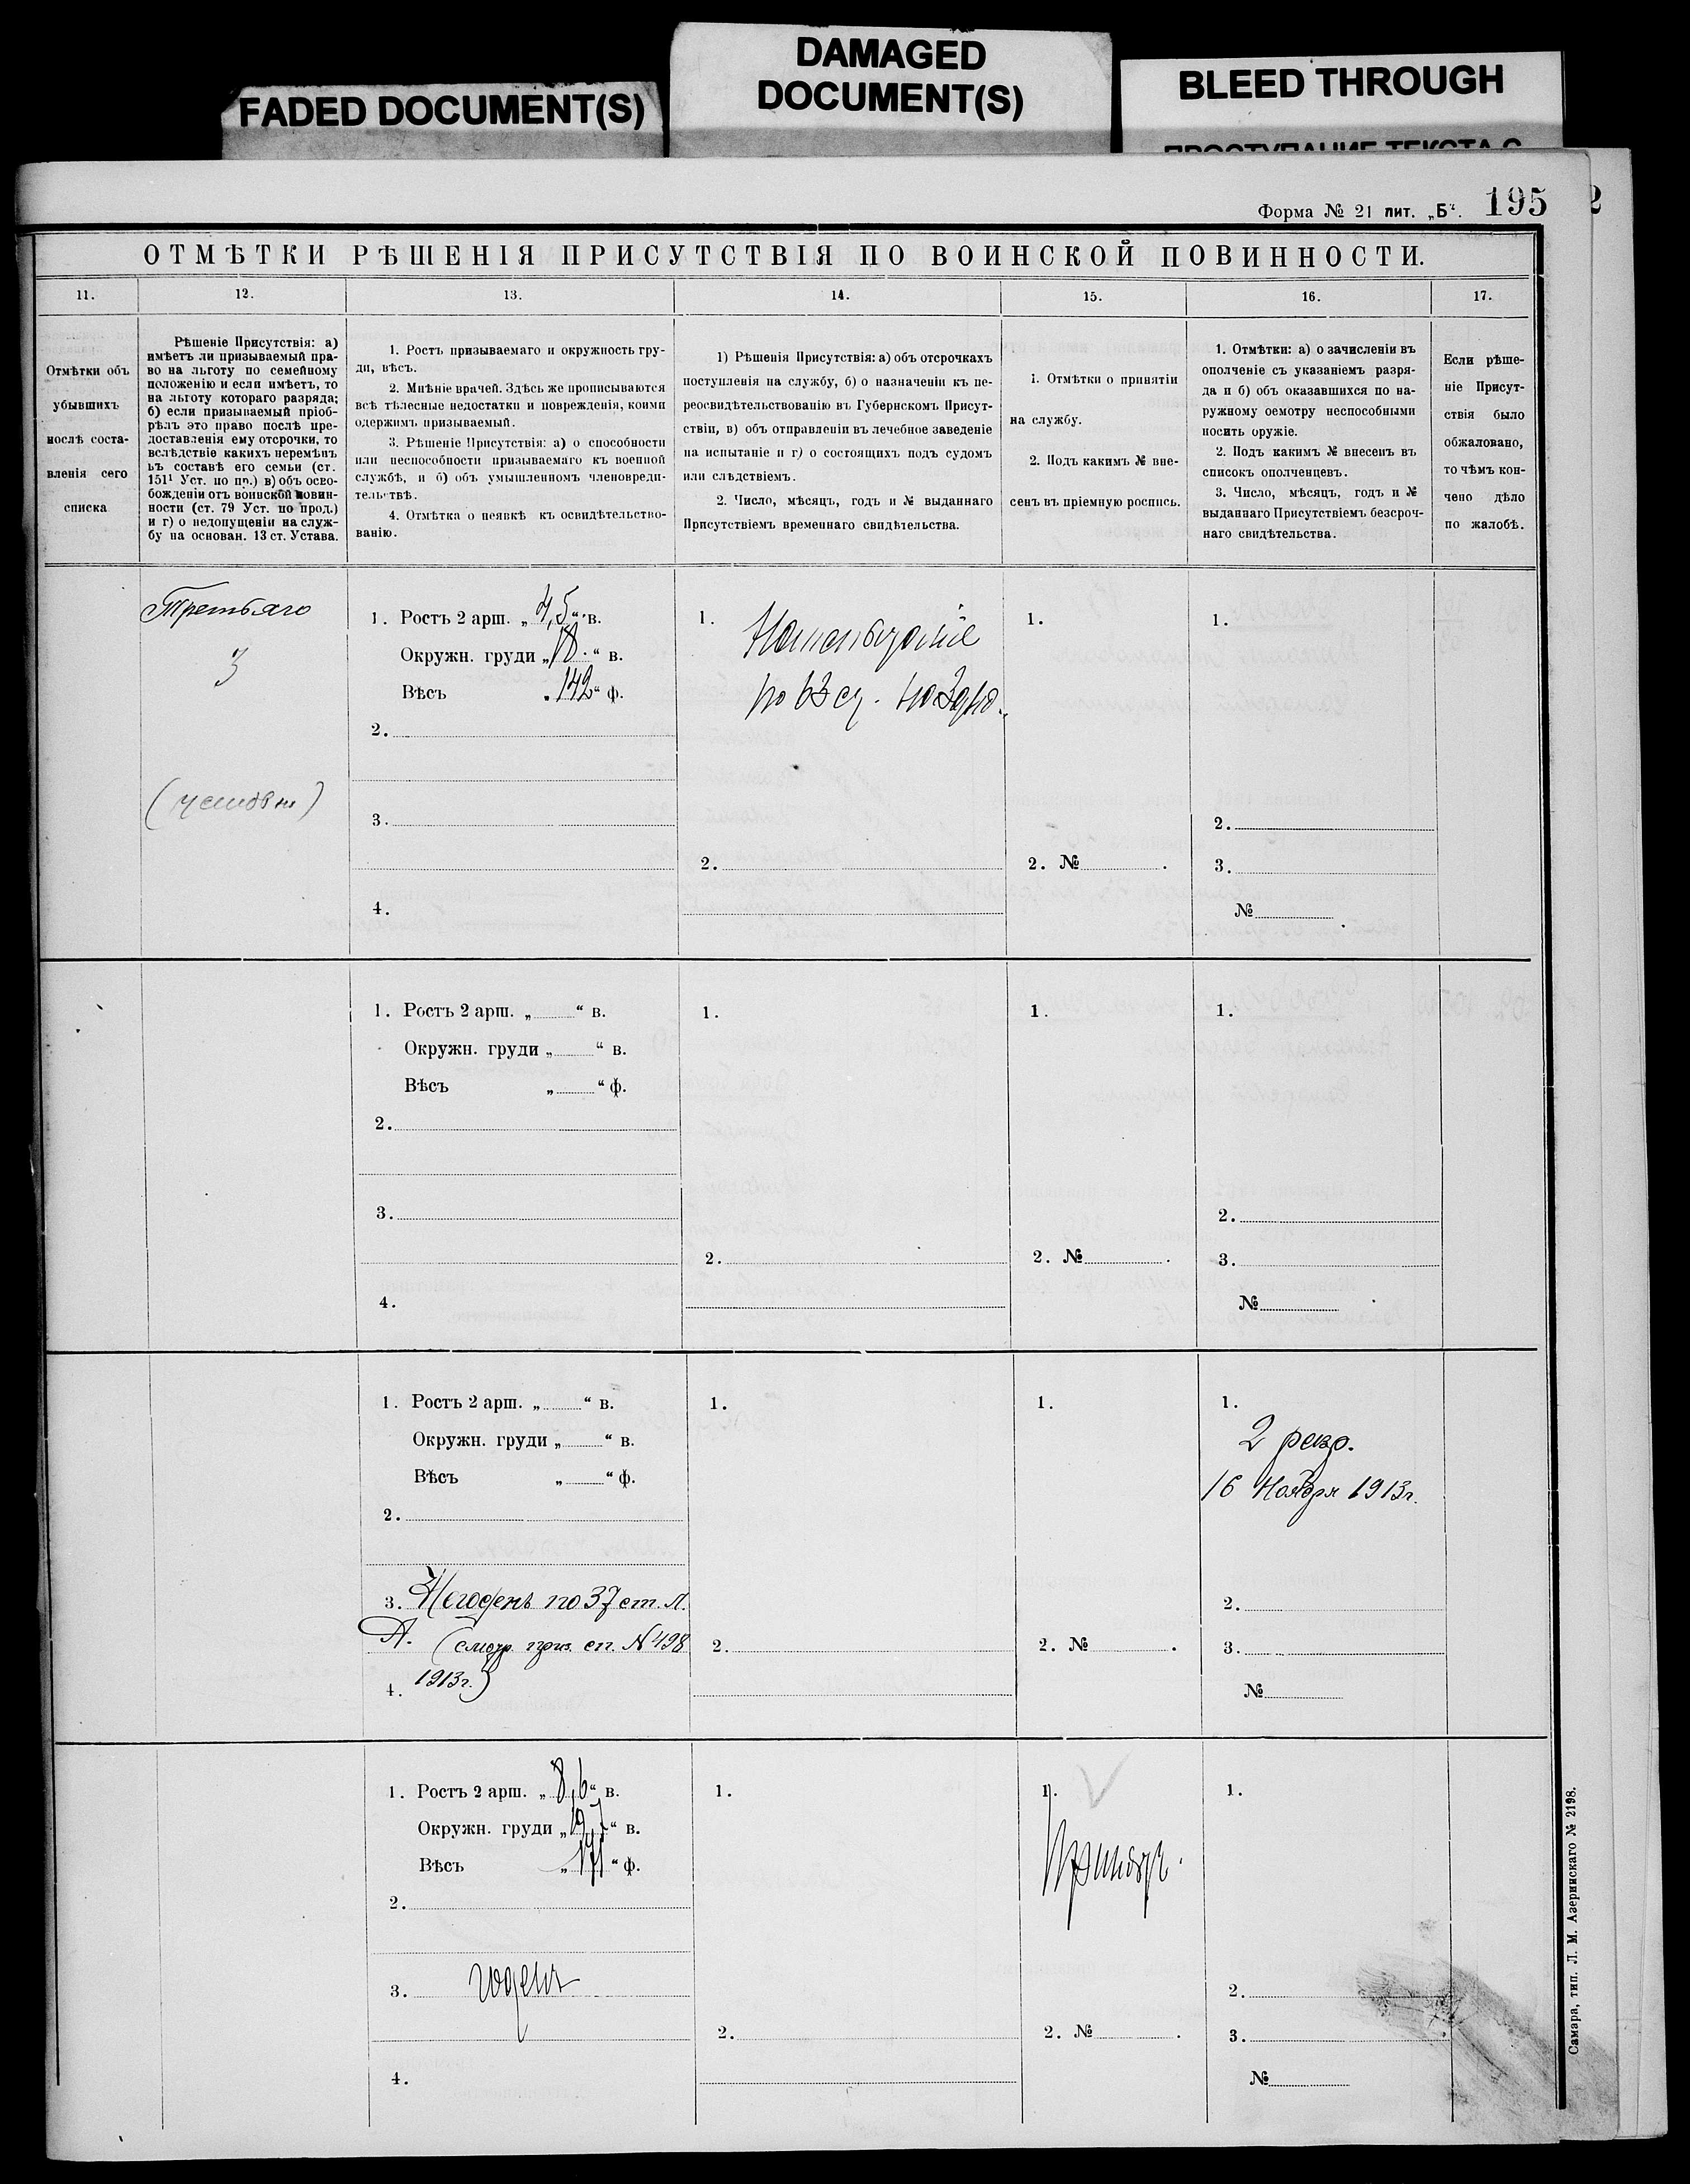 FADED DOCUMENT(S)
DAMAGED
DOCUMENT(S)
BLEED THROUGH
ПРОСТУПАНИЕ ТЕКСТА С
Форма № 21 лит. „Б“.
195
2
ОТМѢТКИ РѢШЕНІЯ ПРИСУТСТВІЯ ПО ВОИНСКОЙ ПОВИННОСТИ.
11.
12.
13.
14.
15.
16.
17.
Отмѣтки объ
убывшихъ
послѣ соста-
вленія сего
списка
Рѣшеніе Присутствія: а)
имѣетъ ли призываемый пра-
во на льготу по семейному
положенію и если имѣетъ, то
на льготу котораго разряда;
б) если призываемый пріоб-
рѣлъ это право послѣ пре-
доставленія ему отсрочки, то
вслѣдствіе какихъ перемѣнъ
въ составѣ его семьи (ст.
151¹ Уст. по пр.) в) объ осво-
божденіи отъ воинской повин-
ности (ст. 79 Уст. по прод.)
и г) о недопущеніи на служ-
бу на основан. 13 ст. Устава.
1. Ростъ призываемаго и окружность гру-
ди, вѣсъ.
2. Мнѣніе врачей. Здѣсь же прописываются
всѣ тѣлесные недостатки и поврежденія, коими
одержимъ призываемый.
3. Рѣшеніе Присутствія: а) о способности
или неспособности призываемаго къ военной
службѣ, и б) объ умышленномъ членовреди-
тельствѣ.
4. Отмѣтка о неявкѣ къ освидѣтельство-
ванію.
1) Рѣшенія Присутствія: а) объ отсрочкахъ
поступленія на службу, б) о назначеніи къ пе-
реосвидѣтельствованію въ Губернскомъ Присут-
ствіи, в) объ отправленіи въ лечебное заведеніе
на испытаніе и г) о состоящихъ подъ судомъ
или слѣдствіемъ.
2. Число, мѣсяцъ, годъ и № выданнаго
Присутствіемъ временнаго свидѣтельства.
1. Отмѣтки о принятіи
на службу.
2. Подъ какимъ № вне-
сенъ въ пріемную роспись.
1. Отмѣтки: а) о зачисленіи въ
ополченіе съ указаніемъ разря-
да и б) объ оказавшихся по на-
ружному осмотру неспособными
носить оружіе.
2. Подъ какимъ № внесенъ въ
списокъ ополченцевъ.
3. Число, мѣсяцъ, годъ и №
выданнаго Присутствіемъ безсроч-
наго свидѣтельства.
Если рѣше-
ніе Присут-
ствія было
обжаловано,
то чѣмъ кон-
чено дѣло
по жалобѣ.
Третьяго
3
1. Ростъ 2 арш. „4,5“ в.
Окружн. груди „18.“ в.
Вѣсъ „142“ ф.
2.
3.
4.
1.
2.
1.
2. №
1.
2.
3.
№
1. Ростъ 2 арш. „ “ в.
Окружн. груди „ “ в.
Вѣсъ „ “ ф.
2.
3.
4.
1.
2.
1.
2. №
1.
2.
3.
№
1. Ростъ 2 арш. „ “ в.
Окружн. груди „ “ в.
Вѣсъ „ “ ф.
2.
3. Негоденъ по 37 ст. Л.
А. (смотр. приз. сп. № 498
4. 1913г.)
1.
2.
1.
2. №
1.
2 разр.
16 Ноября 1913г.
2.
3.
№
1. Ростъ 2 арш. „8,6“ в.
Окружн. груди „19,7“ в.
Вѣсъ „171“ ф.
2.
3. годенъ
4.
1.
2.
1.
Принятъ.
2. №
1.
2.
3.
№
Самара, тип. Л. М. Азеринскаго № 2198.